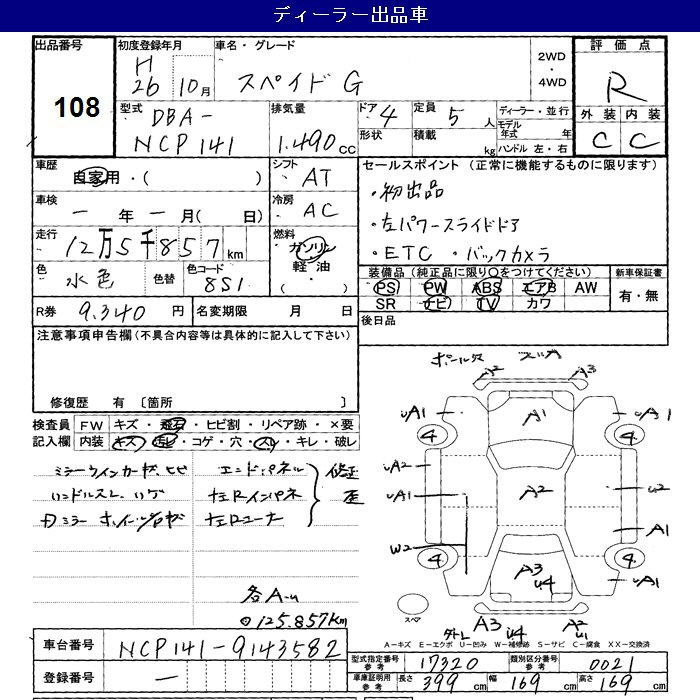 ディーラー出品車
出品番号
108
初度登録年月
H
26 10月
車名・グレード
スペイド G
2WD
・
4WD
評価点
R
外装 内装
C C
型式
DBA-
NCP141
排気量
1.490 cc
ドア 4
形状
定員 5 人
積載 kg
ディーラー・並行
モデル
年式 年
ハンドル 左・右
車歴
自家用・( )
シフト
AT
セールスポイント (正常に機能するものに限ります)
・初出品
・左パワースライドドア
・ETC ・バックカメラ
車検
ー 年 ー 月( 日)
冷房
AC
走行
12万5千857km
燃料
ガソリン
軽油
・( )
色
水色
色替
色コード
8S1
装備品 (純正品に限り○をつけてください)
PS PW ABS エアB AW
SR ナビ TV カワ
新車保証書
有・無
R券 9.340 円
名変期限 月 日
後日品
注意事項申告欄 (不具合内容等は具体的に記入して下さい)
修復歴 有 〔箇所 〕
検査員
記入欄
FW キズ・飛石・ヒビ割・リペア跡・×要
内装 キズ・汚レ・コゲ・穴・スレ・キレ・破レ
ハンドルスレ、ハゲ
エンドパネル
左Rインパネ
左Rコーナ
修正
歪
各A-u
125.857km
A2 A3
uA1 A1 uA1
4 4
uA2
uA1 A2 u2
W2 A1
4 4
A3
u4
uA1
スペア
A3 u4 A2
u1
A−キズ E−エクボ U−凹み W−補修跡 S−サビ C−腐食 XX−交換済
車台番号
NCP141-9143582
登録番号
ー
型式指定番号
参考
17320
類別区分番号
参考
0021
車庫証明用
参考
長さ 399 cm 幅 169 cm 高さ 169 cm